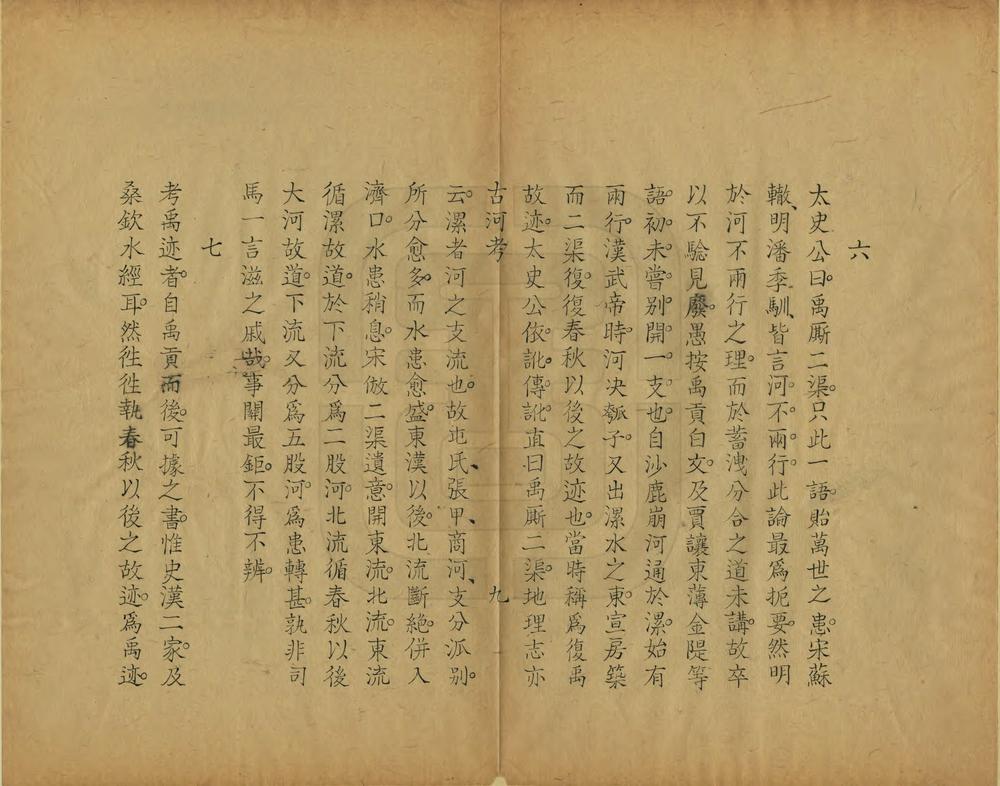 六
太史公曰。禹厮二渠。只此一語。貽萬世之患。宋蘇
轍、明潘季馴、皆言河。不。兩。行。此論最爲扼要。然明
於河不兩行之理。而於蓄洩分合之道未講。故卒
以不驗見廢。愚按禹貢白文。及賈讓東薄金隄等
語。初。未。嘗。别。開。一。支。也。自沙鹿崩河通於漯。始有
兩。行。漢武帝時。河决瓠子。又出漯水之東。宣房築
而二渠復。復春秋以後之故迹也。當時稱爲復禹
故迹。太史公依。訛。傳。訛。直曰禹厮二渠。地理志亦
古河考
九
云。漯者河之支流也。故屯氏、張甲、商河、支分派别。
所分愈多。而水患愈盛。東漢以後。北流斷絶。併入
濟口。水患稍息。宋倣二渠遺意。開東流。北流。東流
循漯故道。於下流分爲二股河。北流循春秋以後
大河故道。下流又分爲五股河。爲患轉甚。孰非司
馬一言滋之戚哉。事關最鉅。不得不辨。
七
考禹迹者。自禹貢而後。可據之書。惟史漢二家。及
桑欽水經耳。然徃徃執春秋以後之故迹。爲禹迹。